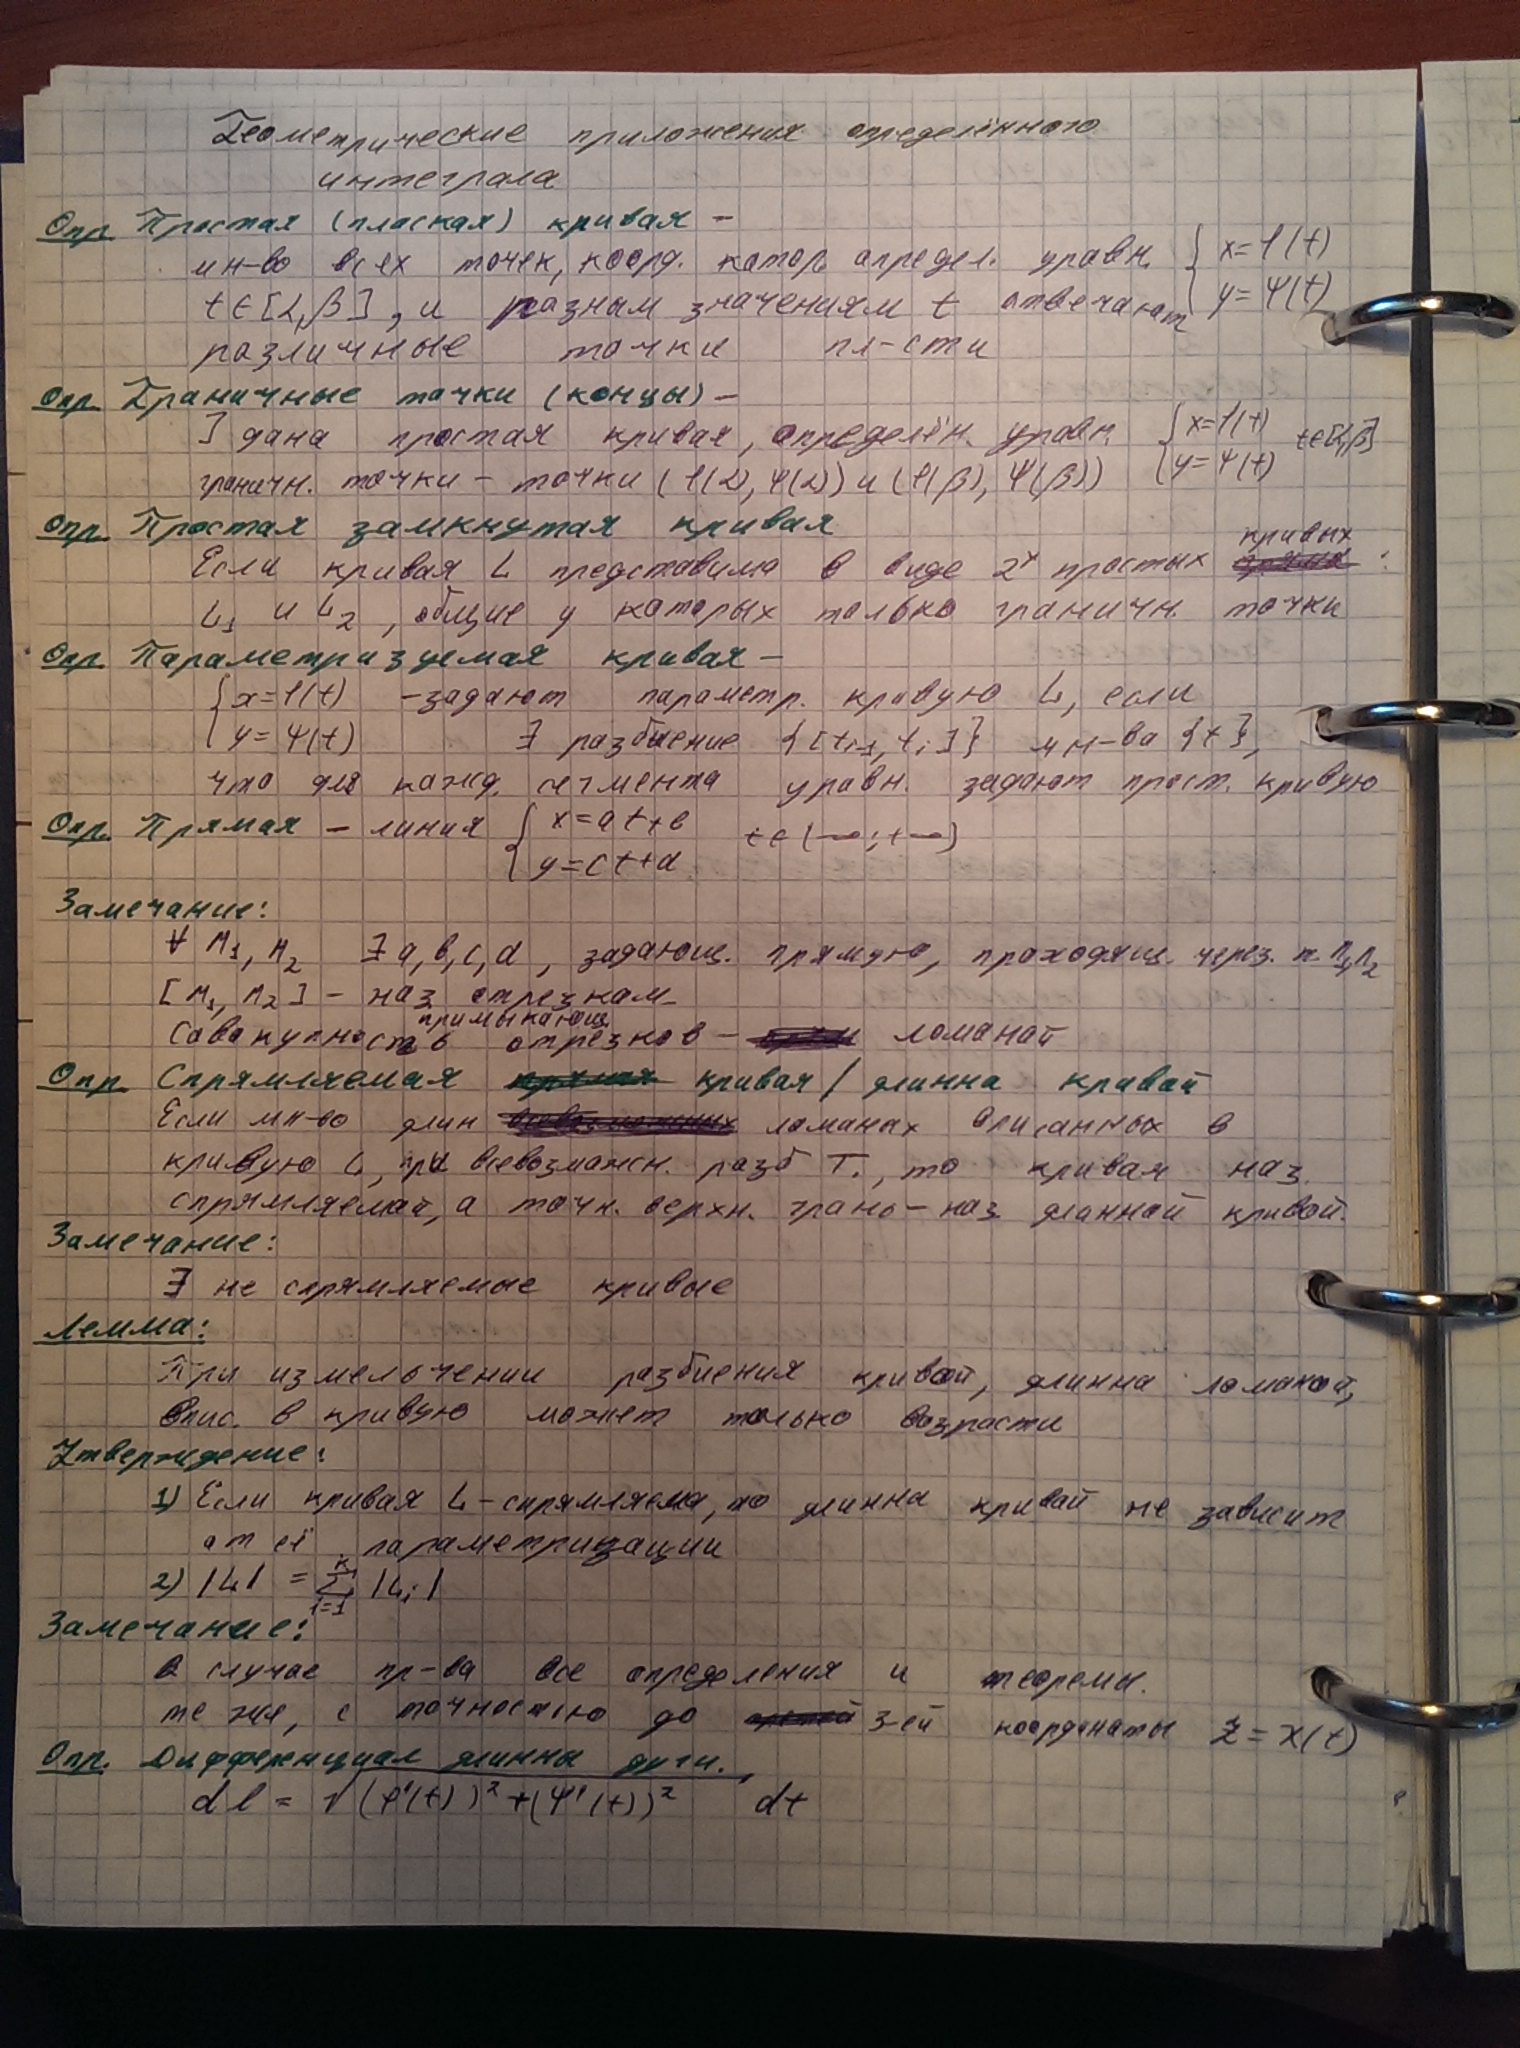 Геометрические приложения определённого
интеграла
Опр. Простая (плоская) кривая –
мн-во всех точек, коорд. котор. определ. уравн. { x=φ(t)
y=ψ(t)
t∈[α,β], и разным значениям t отвечают
различные точки пл-сти
Опр. Граничные точки (концы) –
] дана простая кривая, определён. уравн. { x=φ(t) t∈[α,β]
y=ψ(t)
граничн. точки – точки (φ(α), ψ(α)) и (φ(β), ψ(β))
Опр. Простая замкнутая кривая
Если кривая L представима в виде 2х простых кривых :
L1 и L2, общие у которых только граничн. точки
Опр. Параметризуемая кривая –
{ x=φ(t) – задают параметр. кривую L, если
y=ψ(t) ∃ разбиение {[ti-1, ti]} мн-ва {t},
что для кажд. сегмента уравн. задают прост. кривую
Опр. Прямая – линия { x=at+b t∈(-∞;+∞)
y=ct+d
Замечание:
∀ M1, M2 ∃ a, b, c, d, задающ. прямую, проходящ. через т. M1, M2
[M1, M2] – наз отрезком
примыкающ.
Совокупность отрезков – ломаной
Опр. Спрямляемая кривая / длинна кривой
Если мн-во длин ломанах вписанных в
кривую L, при всевозможн. разб T., то кривая наз.
спрямляемой, а точн. верхн. грань – наз длинной кривой.
Замечание:
∃ не спрямляемые кривые
Лемма:
При измельчении разбиения кривой, длинна ломаной,
впис. в кривую может только возрасти
Утверждение:
1) Если кривая L – спрямляема, то длинна кривой не зависит
от её параметризации
2) |L| = ∑ᵏᵢ₌₁ |Li|
Замечание:
В случае пр-ва все определения и теоремы.
те же, с точностью до 3-ей координаты z = χ(t)
Опр. Дифференциал длинны дуги.
dl = √(φ'(t))² + (ψ'(t))² dt